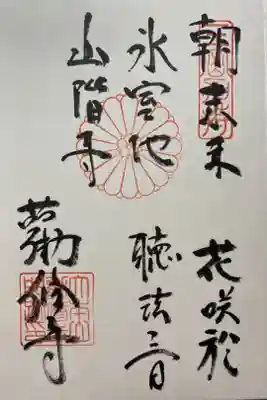 朝 花咲於
氷室池 聴法音
山階寺 勧修寺